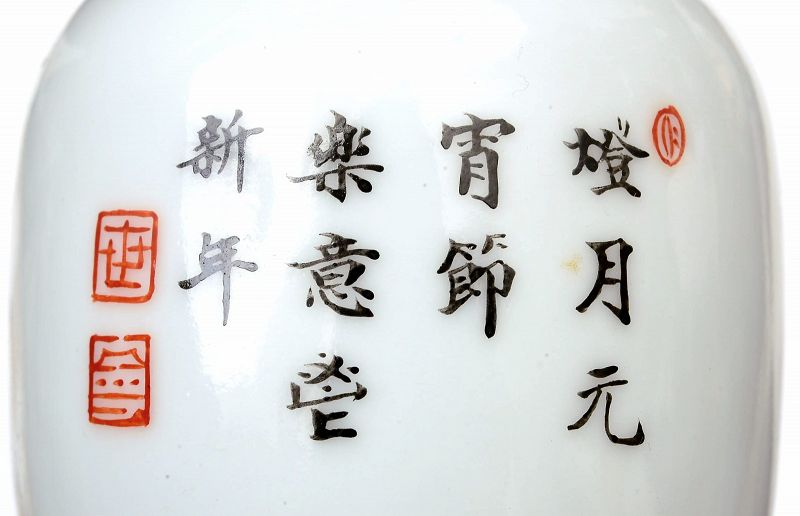 燈月元
宵節
樂意登
新年